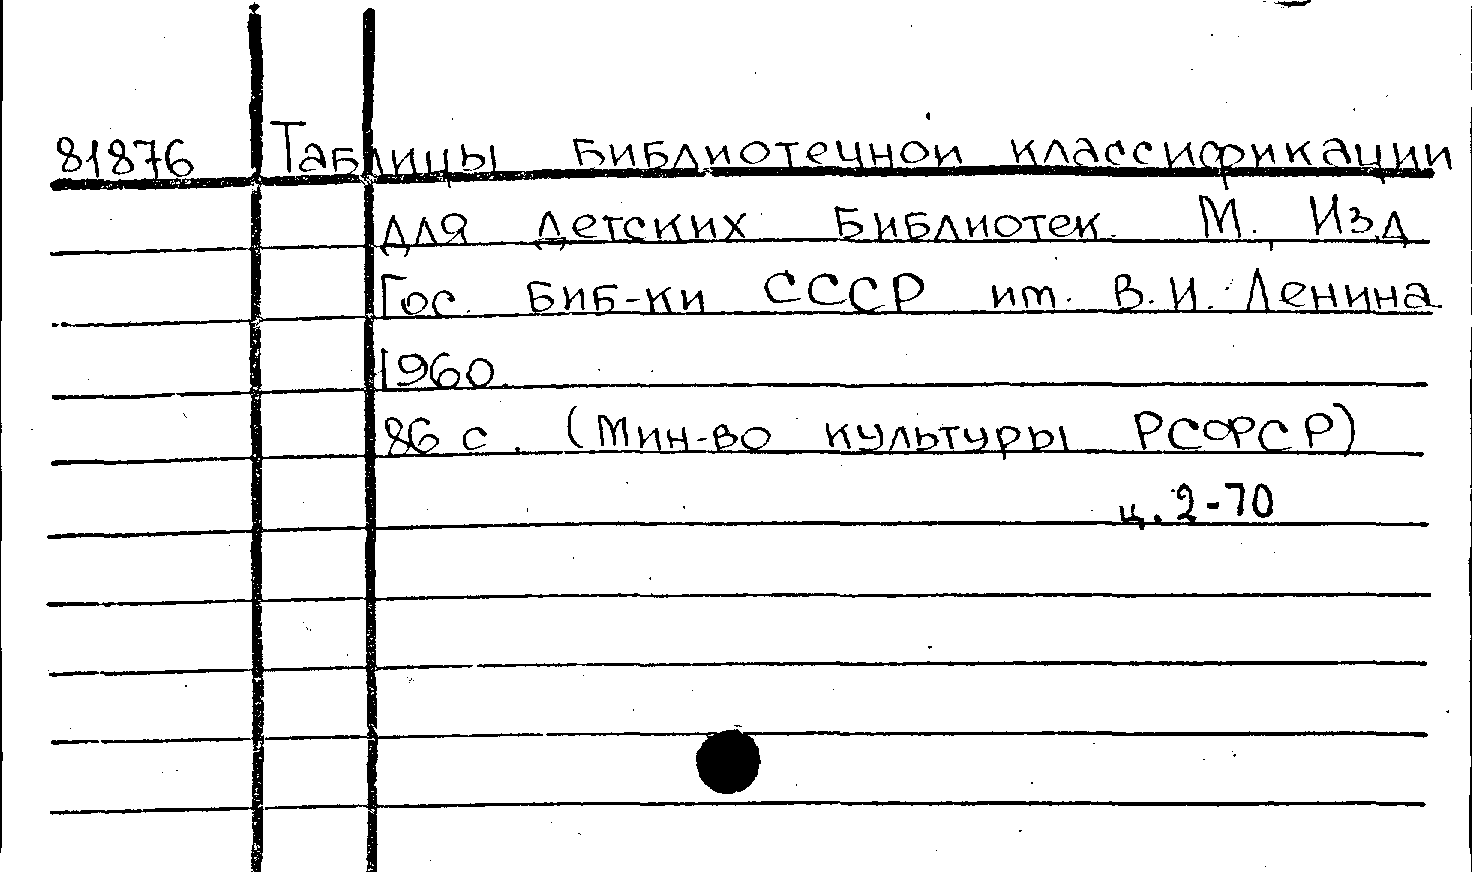 81876 Таблицы библиотечной классификации
для детских библиотек. М., Изд
Гос. биб-ки СССР им. В.И. Ленина
1960.
86 с. (Мин-во культуры РСФСР)
ц. 2-70